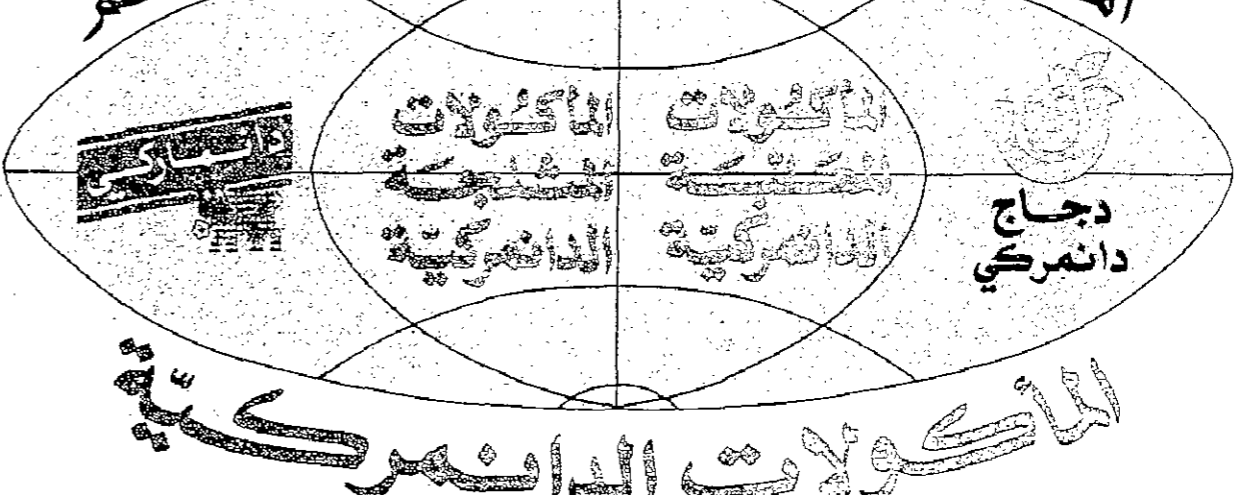 دجاج
دانمركي
المأكولات
المعلبة
الدانمركيّة
المأكولات
المثلجة
الدانمركيّة
دانماركي
المأكولات الدانمركيّة